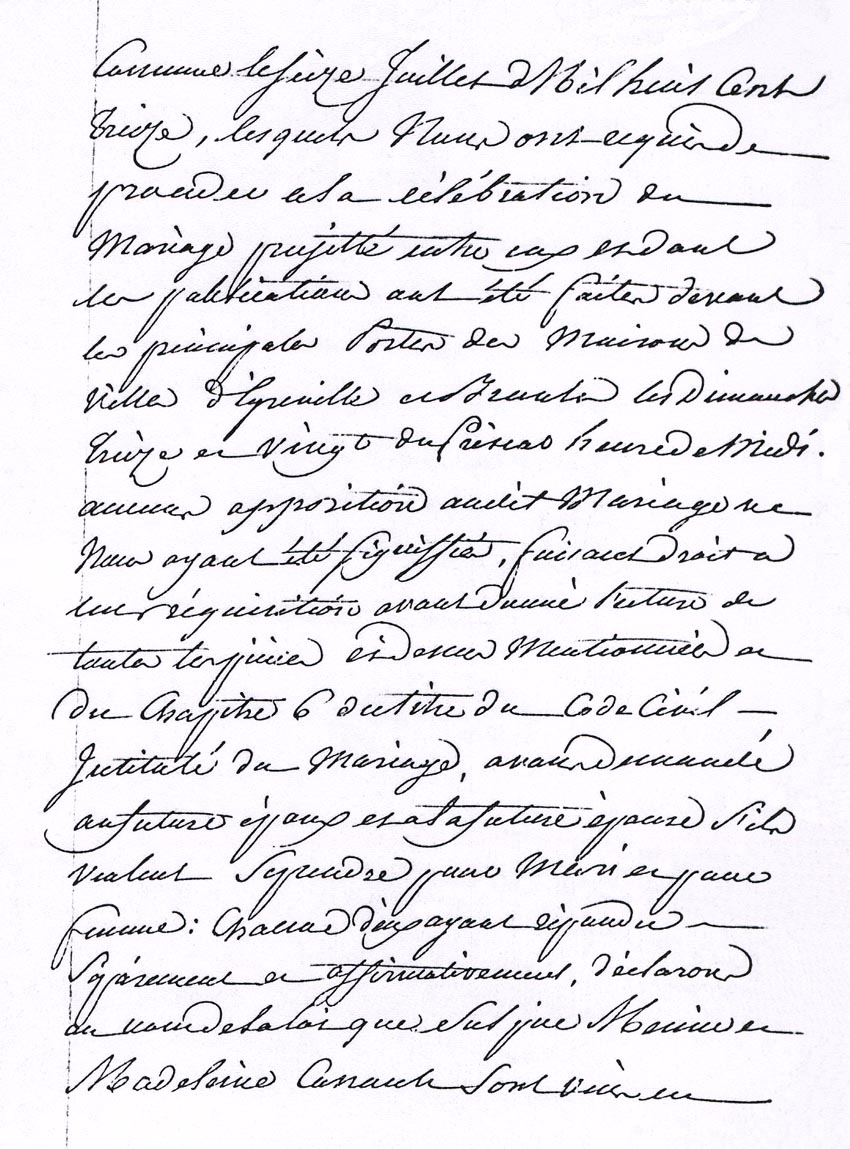 Commune le seize Juillet Mil huit Cent
treize, lesquels Nous ont requis de
proceder a la célébration du
Mariage projetté entre eux et dont
les publications ont été faites devant
les principales Portes des Maisons de
Ville d'Igreville et les Dimanches
treize et vingt du heure de Midi.
aucune opposition audit Mariage ne
Nous ayant été signiffiée, faisant droit a
leur réquisition avont donné lecture de
toutes les pièces ci dessus Mentionnées et
du Chapitre 6 du titre du Code Civil
Intitulé du Mariage, avons demandé
au future époux et a la future épouse s'ils
veulent se prendre pour Mari et pour
femme : Chacun d'eux ayant répondu
séparement et affirmativement, déclarons
au nom de la loi que
Madeleine sont unis en